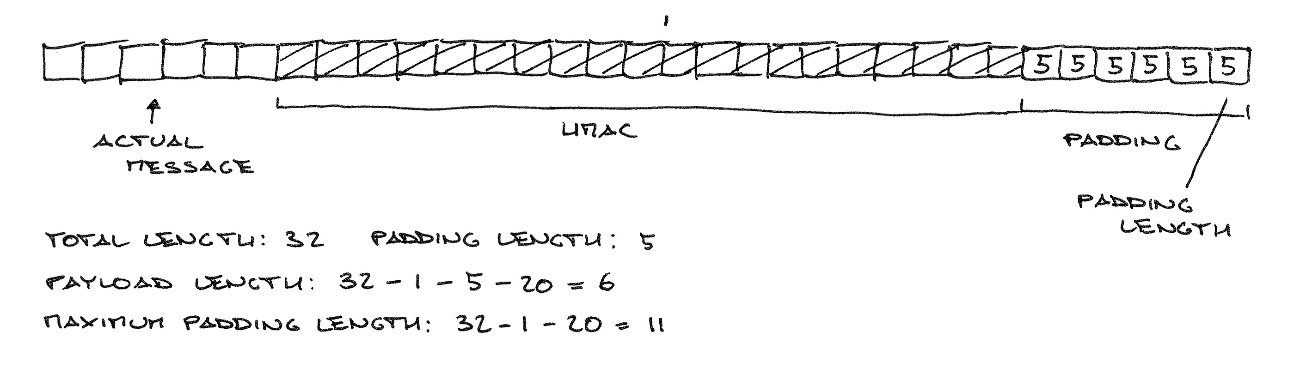 5 5 5 5 5 5
HMAC
ACTUAL
MESSAGE
PADDING
PADDING
LENGTH
TOTAL LENGTH: 32 PADDING LENGTH: 5
PAYLOAD LENGTH: 32 - 1 - 5 - 20 = 6
MAXIMUM PADDING LENGTH: 32 - 1 - 20 = 11